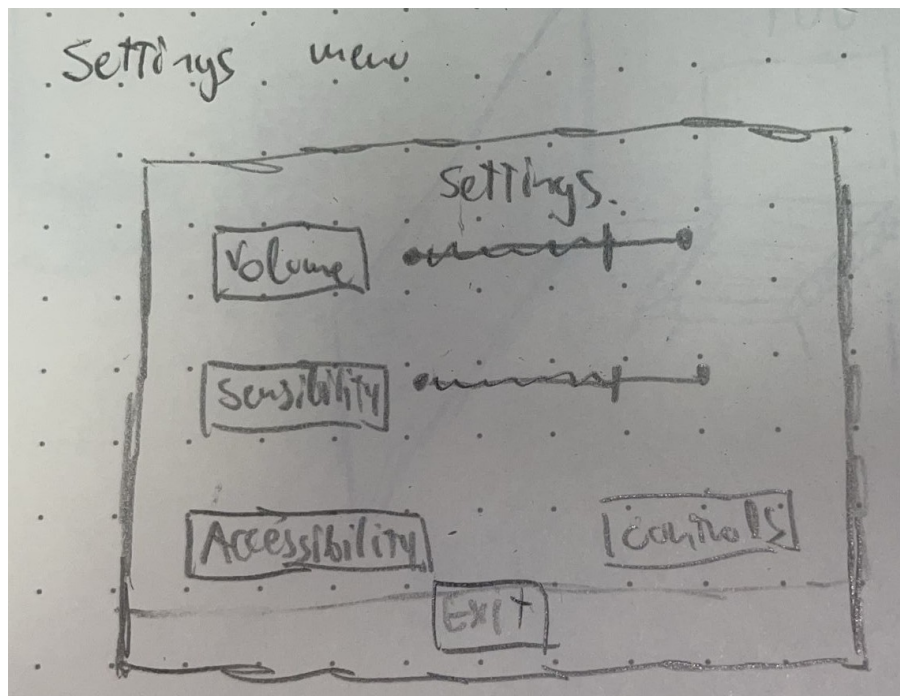 Settings menu
Settings.
Volume
Sensibility
Accessibility
Controls
Exit